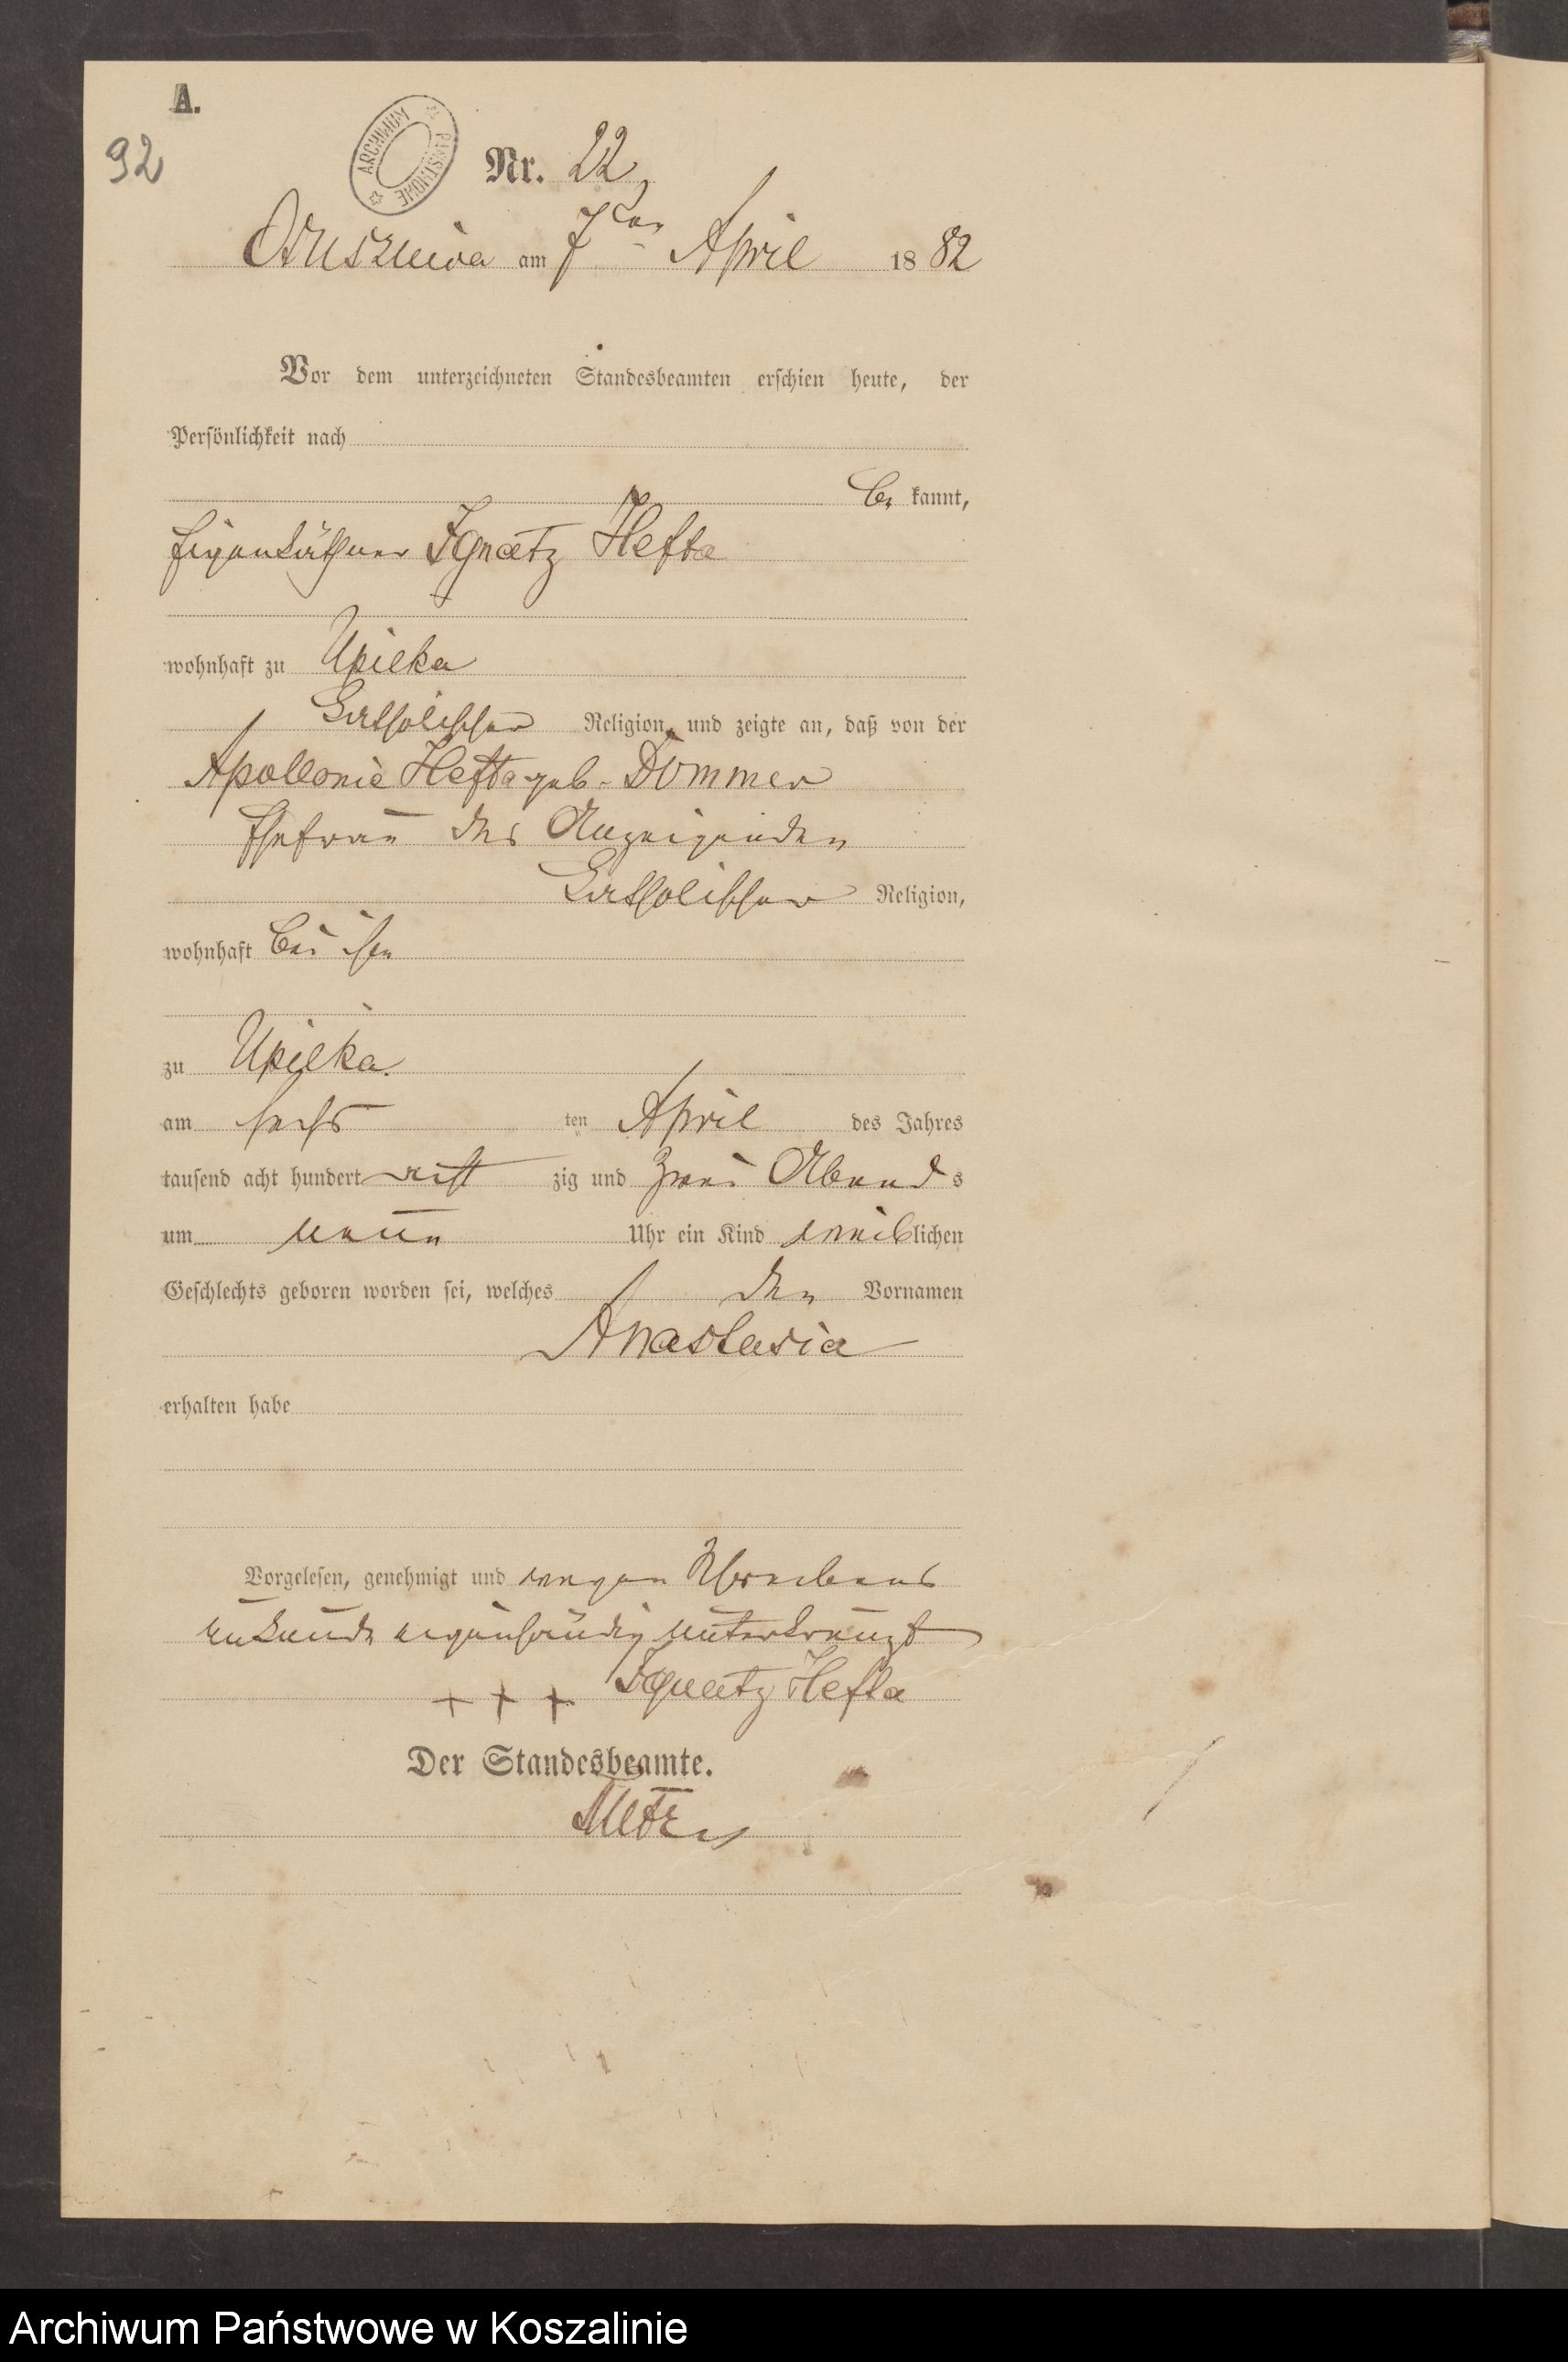 A.
92
ARCHIWUM PAŃSTWOWE
Nr. 22
Oszuszniza am 7ten April 1882
Vor dem unterzeichneten Standesbeamten erschien heute, der
Persönlichkeit nach
be kannt,
Eigenkäthner Ignatz Hefta
wohnhaft zu Upilka
katholischer Religion, und zeigte an, daß von der
Apollonie Hefta geb. Dommer
Ehefrau des Anzeigenden
katholischer Religion,
wohnhaft bei ihm
zu Upilka.
am sechs ten April des Jahres
tausend acht hundert acht zig und zwei Abends
um neun Uhr ein Kind weiblichen
Geschlechts geboren worden sei, welches den Vornamen
Anastasia
erhalten habe
Vorgelesen, genehmigt und wegen Schreibens
unkunde eigenhändig unterkreuzt
+ + + Ignatz Hefta
Der Standesbeamte.
Archiwum Państwowe w Koszalinie